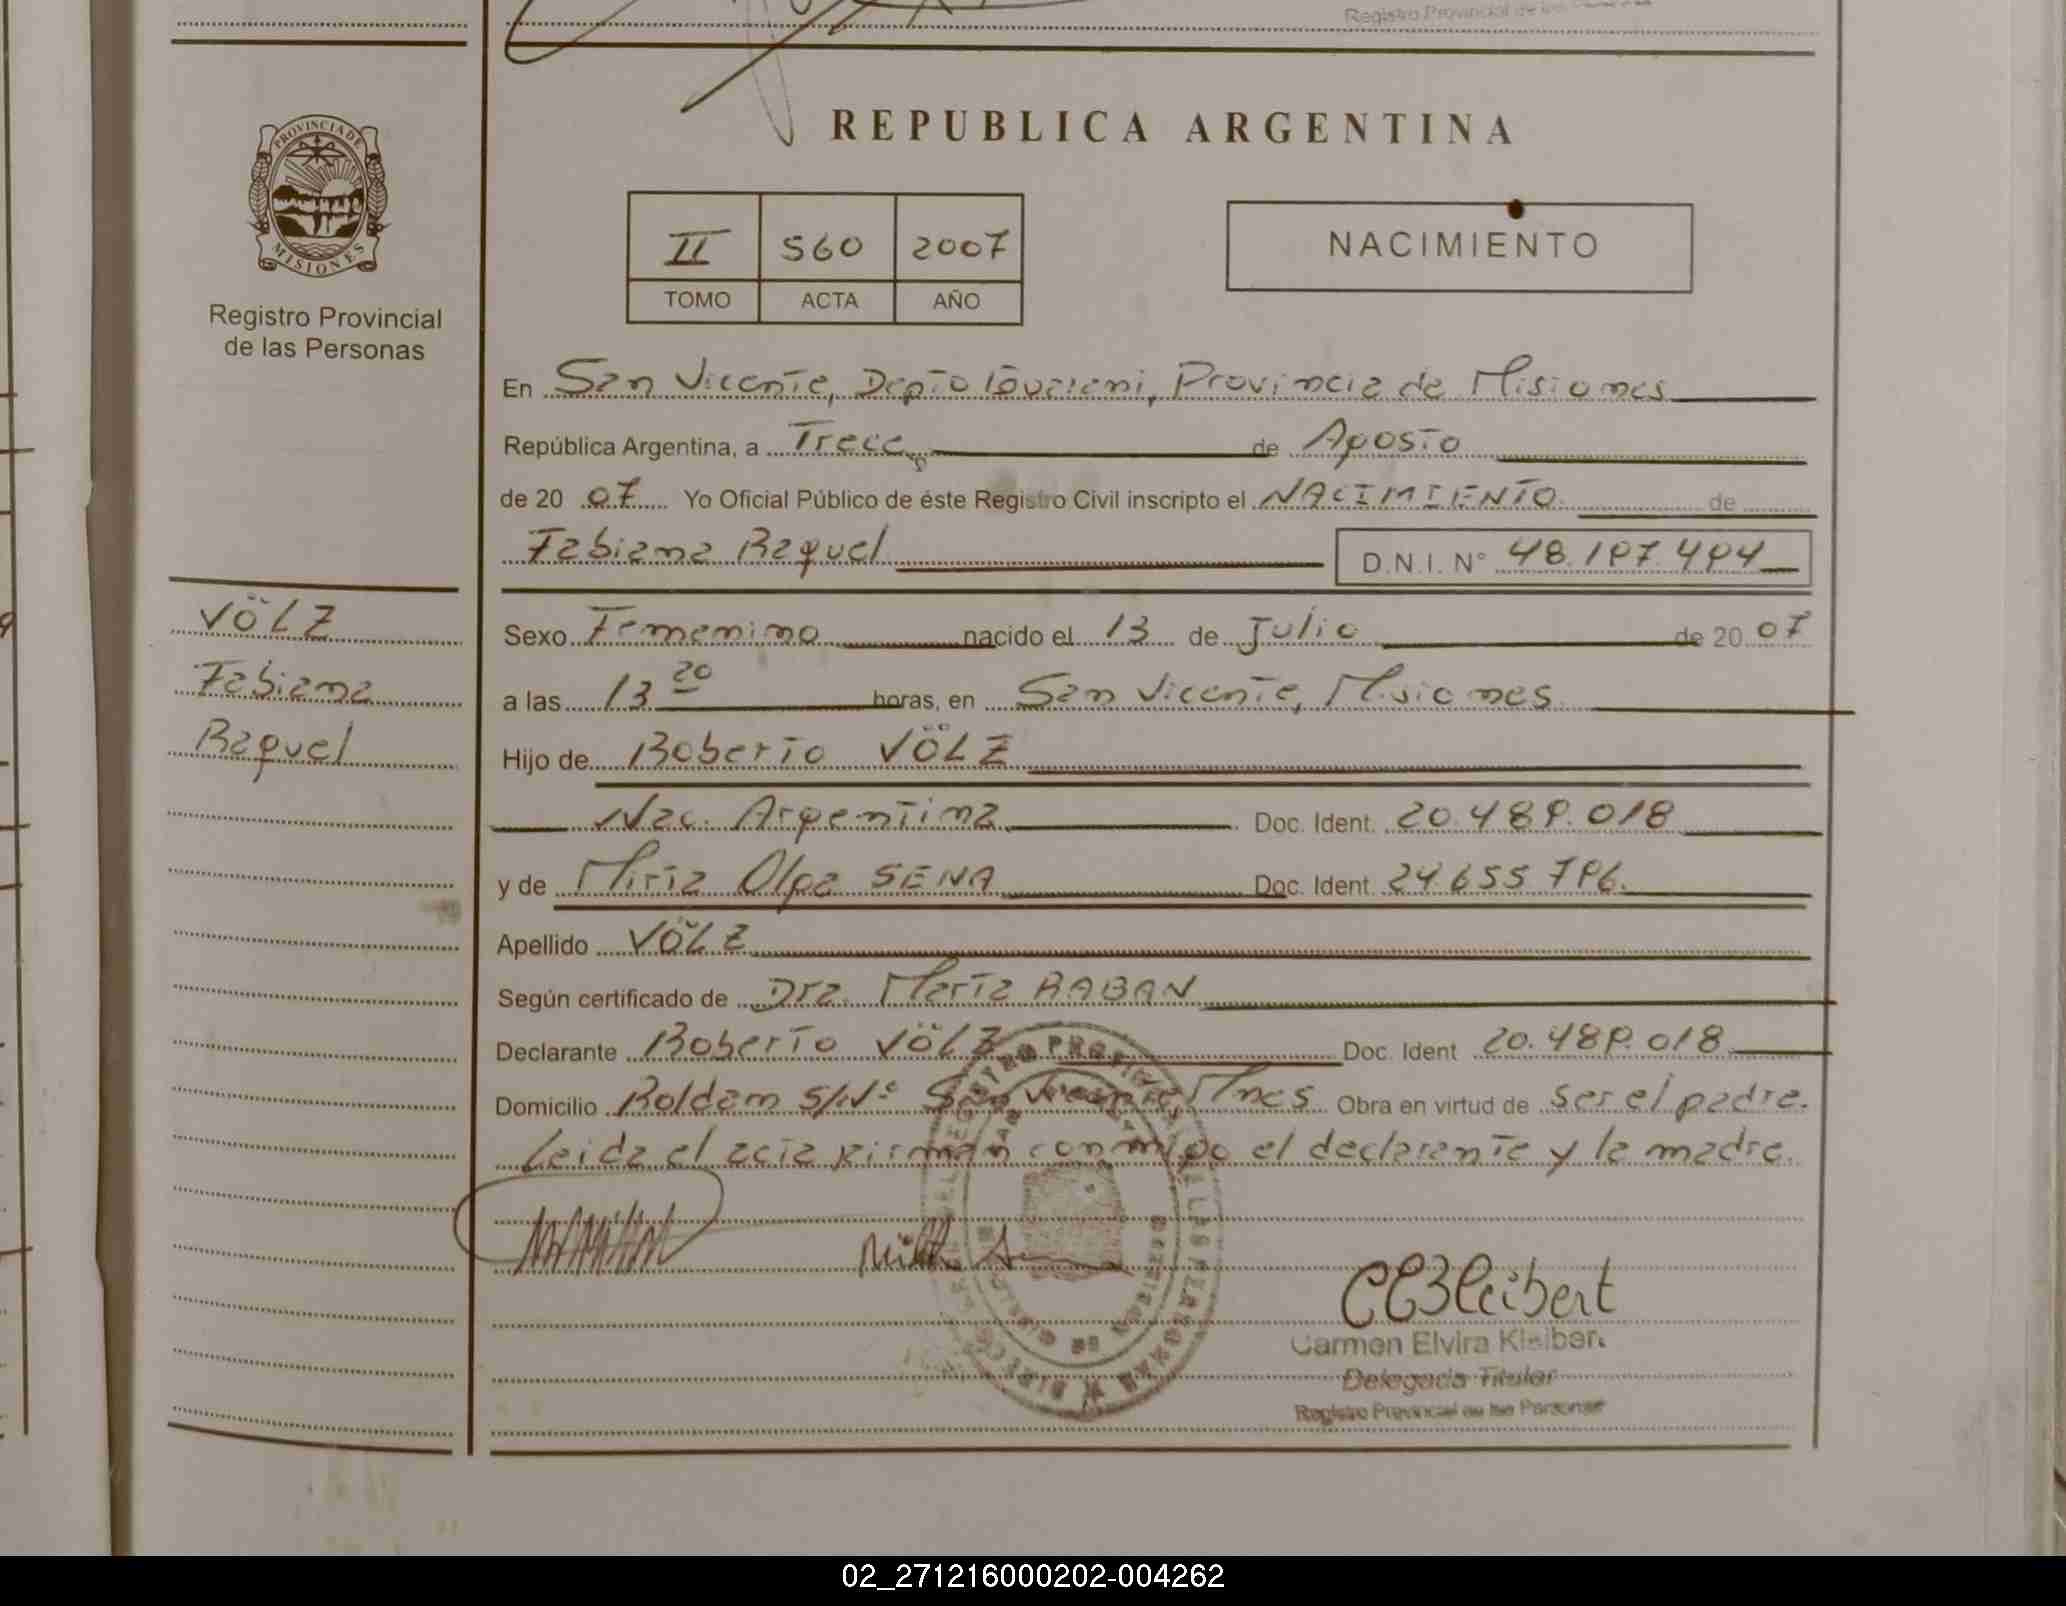 Registro Provincial de las Personas
PROVINCIA DE
MISIONES
Registro Provincial
de las Personas
REPUBLICA ARGENTINA
II 560 2007
TOMO ACTA AÑO
NACIMIENTO
En San Vicente, Depto Guarani, Provincia de Misiones
República Argentina, a Trece de Agosto
de 20 07 Yo Oficial Público de éste Registro Civil inscripto el NACIMIENTO de
Fabiana Raquel D.N.I. N° 48.197.494
VÖLZ
Fabiana
Raquel
Sexo Femenino nacido el 13 de Julio de 20 07
a las 13 20 horas, en San Vicente, Misiones
Hijo de Roberto VÖLZ
Nac. Argentina Doc. Ident. 20.489.018
y de Mirta Olga SENA Doc. Ident. 24.655.796.
Apellido VÖLZ
Según certificado de Dra. Marta RABAN
Declarante Roberto VÖLZ Doc. Ident 20.489.018
Domicilio Roldan S/N° San Vicente, Mnes Obra en virtud de ser el padre.
Leida el acta firman conmigo el declarante y la madre.
CEKleibert
Carmen Elvira Kleibert
Delegada Titular
Registro Provincial de las Personas
02_271216000202-004262